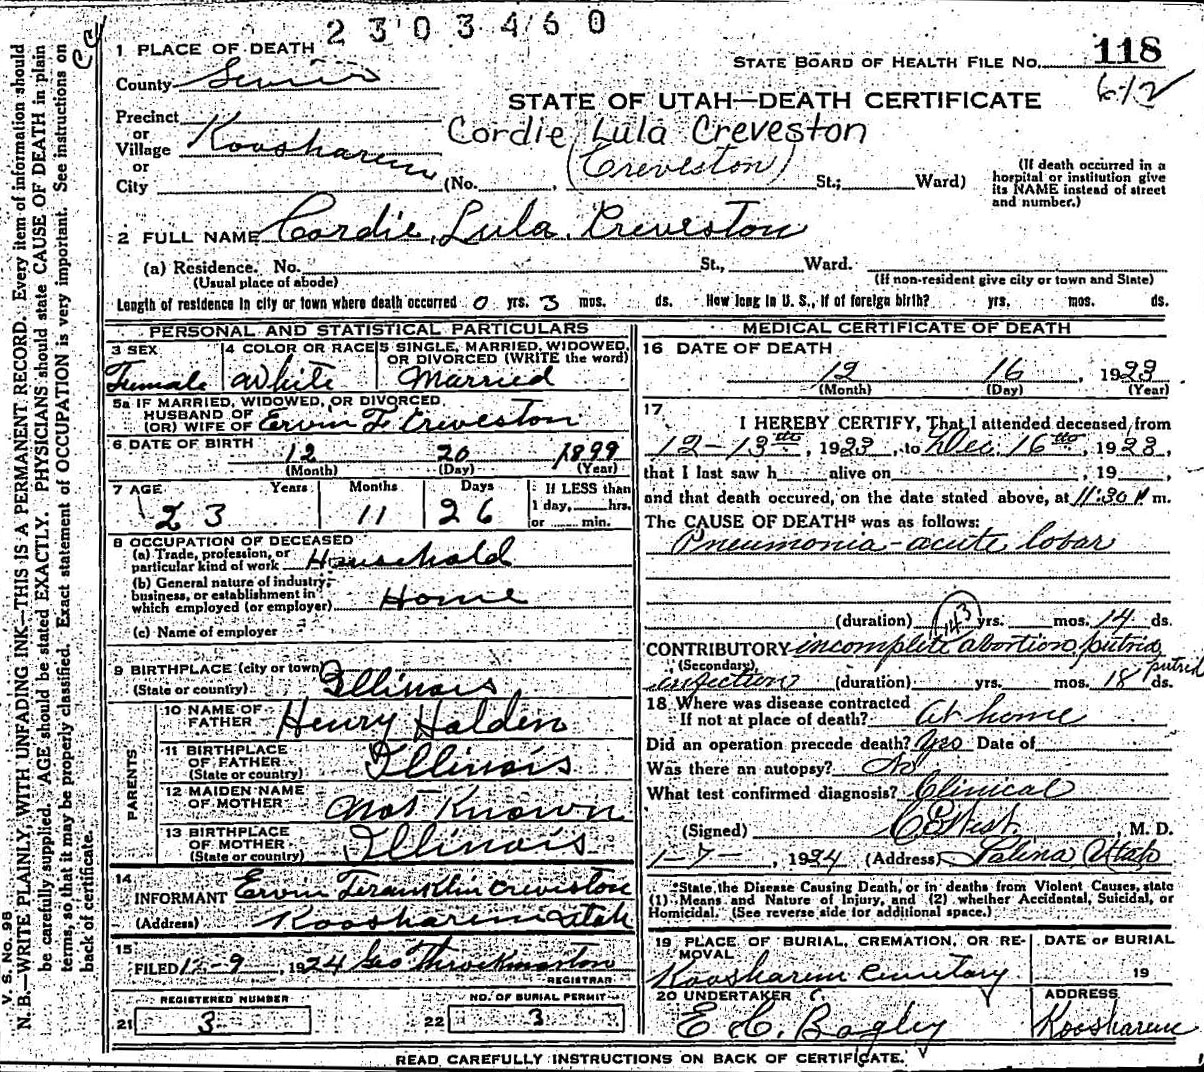 2303460
1 PLACE OF DEATH
STATE BOARD OF HEALTH FILE No. 118
County Sevier
612
STATE OF UTAH—DEATH CERTIFICATE
Precinct
or
Village Koosharem
Cordie Lula Creveston
(Creveston)
or
City (No. , St.; Ward)
(If death occurred in a
hospital or institution give
its NAME instead of street
and number.)
2 FULL NAME Cordie Lula Creveston
(a) Residence. No. St., Ward.
(Usual place of abode) (If non-resident give city or town and State)
Length of residence in city or town where death occurred 0 yrs. 3 mos. ds. How long in U. S., if of foreign birth? yrs. mos. ds.
PERSONAL AND STATISTICAL PARTICULARS
3 SEX
Female
4 COLOR OR RACE
White
5 SINGLE, MARRIED, WIDOWED,
OR DIVORCED (WRITE the word)
Married
5a IF MARRIED, WIDOWED, OR DIVORCED
HUSBAND OF
(OR) WIFE OF Ervin F Creveston
6 DATE OF BIRTH
12 20 1899
(Month) (Day) (Year)
7 AGE Years Months Days
23 11 26
If LESS than
1 day, hrs.
or min.
8 OCCUPATION OF DECEASED
(a) Trade, profession, or
particular kind of work Household
(b) General nature of industry,
business, or establishment in
which employed (or employer) Home
(c) Name of employer
9 BIRTHPLACE (city or town)
(State or country) Illinois
PARENTS
10 NAME OF
FATHER Henry Holden
11 BIRTHPLACE
OF FATHER
(State or country) Illinois
12 MAIDEN NAME
OF MOTHER Not Known
13 BIRTHPLACE
OF MOTHER
(State or country) Illinois
14
INFORMANT Ervin Franklin Creviston
(Address) Koosharem Utah
15
FILED 12-9, 1924 Geo Throckmorton
REGISTRAR
REGISTERED NUMBER
21 3
NO. OF BURIAL PERMIT
22 3
MEDICAL CERTIFICATE OF DEATH
16 DATE OF DEATH
12 16, 1923
(Month) (Day) (Year)
17
I HEREBY CERTIFY, That I attended deceased from
12-13th, 1923, to Dec. 16th, 1923,
that I last saw h alive on , 19 ,
and that death occured, on the date stated above, at 11:30 P m.
The CAUSE OF DEATH* was as follows:
Pneumonia-acute lobar
143
(duration) yrs. mos. 14 ds.
CONTRIBUTORY incomplete abortion putrid
(Secondary) putrid
infection (duration) yrs. mos. 18 ds.
18 Where was disease contracted
If not at place of death? At home
Did an operation precede death? Yes Date of
Was there an autopsy? No
What test confirmed diagnosis? Clinical
(Signed) C E West, M. D.
1-7, 1924 (Address) Salina Utah
*State the Disease Causing Death, or in deaths from Violent Causes, state
(1) Means and Nature of Injury, and (2) whether Accidental, Suicidal, or
Homicidal. (See reverse side for additional space.)
19 PLACE OF BURIAL, CREMATION, OR RE-
MOVAL
Koosharem Cemetary
DATE OF BURIAL
19
20 UNDERTAKER
E. H. Bagley
ADDRESS
Koosharem
READ CAREFULLY INSTRUCTIONS ON BACK OF CERTIFICATE.
V. S. No. 98
N. B.—WRITE PLAINLY, WITH UNFADING INK—THIS IS A PERMANENT RECORD. Every item of information should
be carefully supplied. AGE should be stated EXACTLY. PHYSICIANS should state CAUSE OF DEATH in plain
terms, so that it may be properly classified. Exact statement of OCCUPATION is very important. See instructions on
back of certificate.